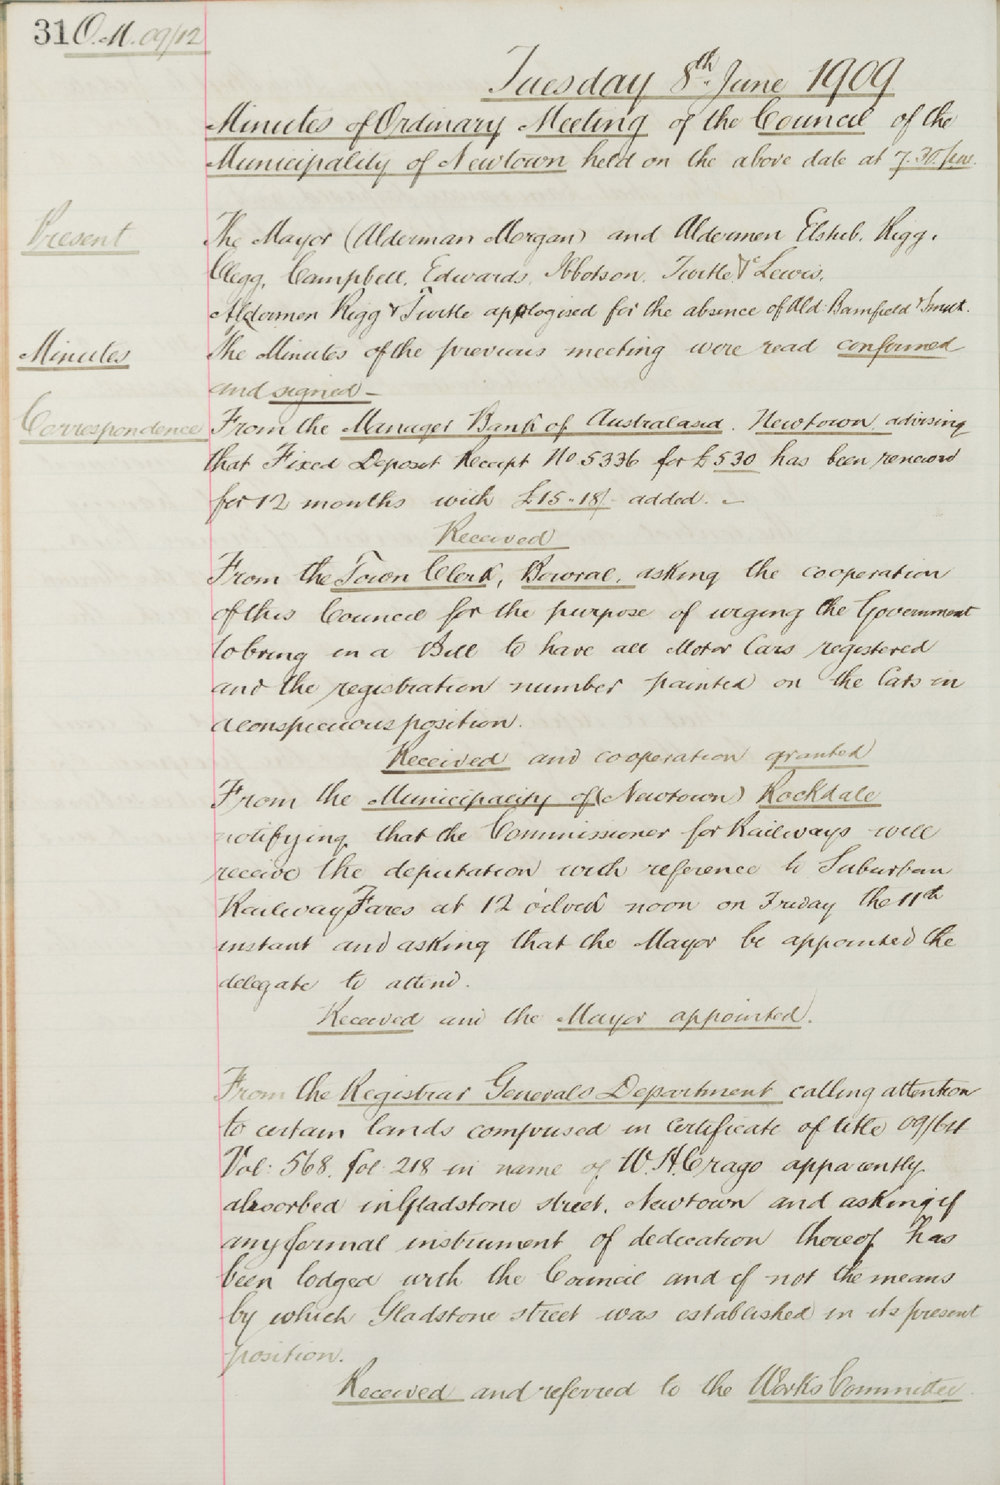 310. M. 09/12
Tuesday 8th June 1909
Minutes of Ordinary Meeting of the Council of the
Municipality of Newtown held on the above date at 7.30 p.m.
Present
The Mayor (Alderman Morgan) and Aldermen Elshub, Rigg,
Clegg, Campbell, Edwards, Ibbotson, Turtle & Lewis.
Aldermen Rigg & Turtle apologised for the absence of Ald Bamfield &
Minutes
The Minutes of the previous meeting were read confirmed
and signed —
Correspondence
From the Manager Bank of Australasia. Newtown, advising
that Fixed Deposit Receipt No 5336 for £530 has been renewed
for 12 months with £15-18/- added. —
Received
From the Town Clerk, Bowral, asking the cooperation
of this Council for the purpose of urging the Government
to bring in a Bill to have all Motor Cars registered
and the registration number painted on the Cars in
a conspicuous position.
Received and cooperation granted
From the Municipality of (Newtown) Rockdale
notifying that the Commissioner for Railways will
receive the deputation with reference to Suburban
Railway Fares at 12 o'clock noon on Friday the 11th
instant and asking that the Mayor be appointed the
delegate to attend.
Received and the Mayor appointed.
From the Registrar Generals Department calling attention
to certain lands comprised in Certificate of title 09/64
Vol: 568. fol: 218 in name of W. H. Crago apparently
absorbed in Gladstone street, Newtown and asking if
any formal instrument of dedication thereof has
been lodged with the Council and if not the means
by which Gladstone street was established in its present
position.
Received and referred to the Works Committee.